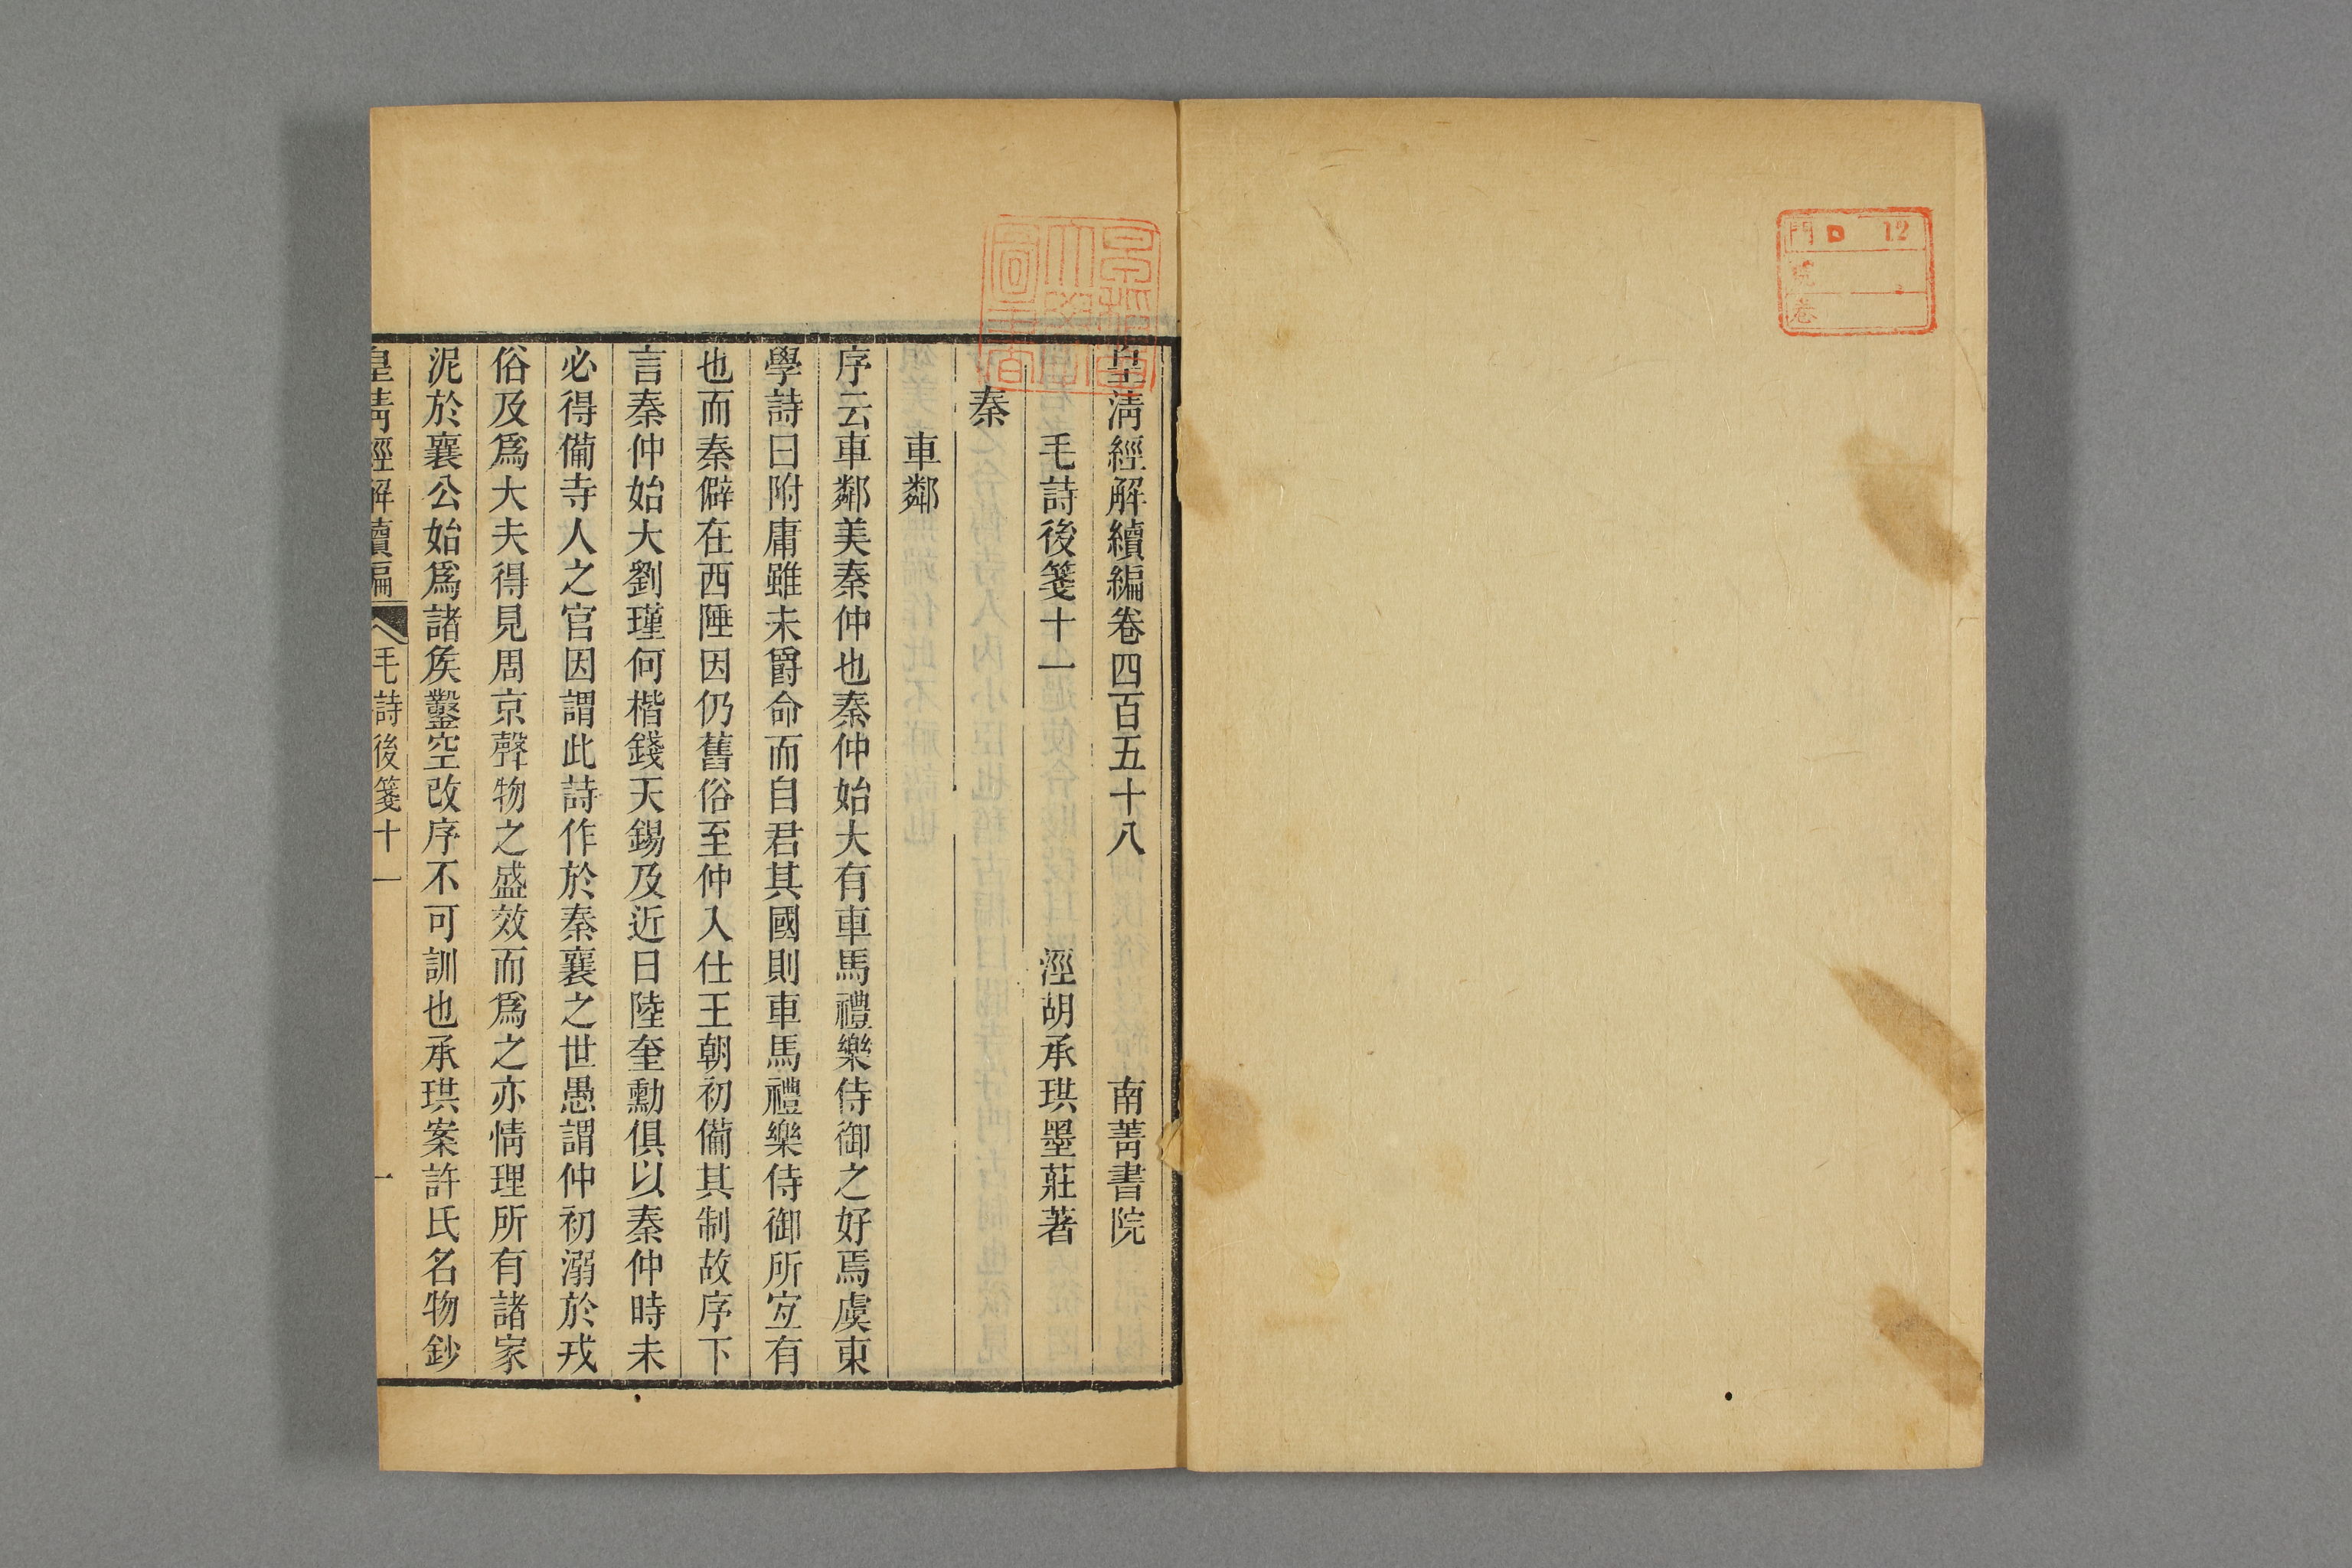 門 D 12
號
卷
皇清經解續編卷四百五十八 南菁書院
毛詩後箋十一 涇胡承珙墨莊著
秦
車鄰
序云車鄰美秦仲也秦仲始大有車馬禮樂侍御之好焉虞東
學詩曰附庸雖未爵命而自君其國則車馬禮樂侍御所宐有
也而秦僻在西陲因仍舊俗至仲入仕王朝初僃其制故序下
言秦仲始大劉瑾何楷錢天錫及近日陸奎勳俱以秦仲時未
必得僃寺人之官因謂此詩作於秦襄之世愚謂仲初溺於戎
俗及爲大夫得見周京聲物之盛效而爲之亦情理所有諸家
泥於襄公始爲諸矦鑿空改序不可訓也承珙案許氏名物鈔
皇清經解續編 毛詩後箋十一 一